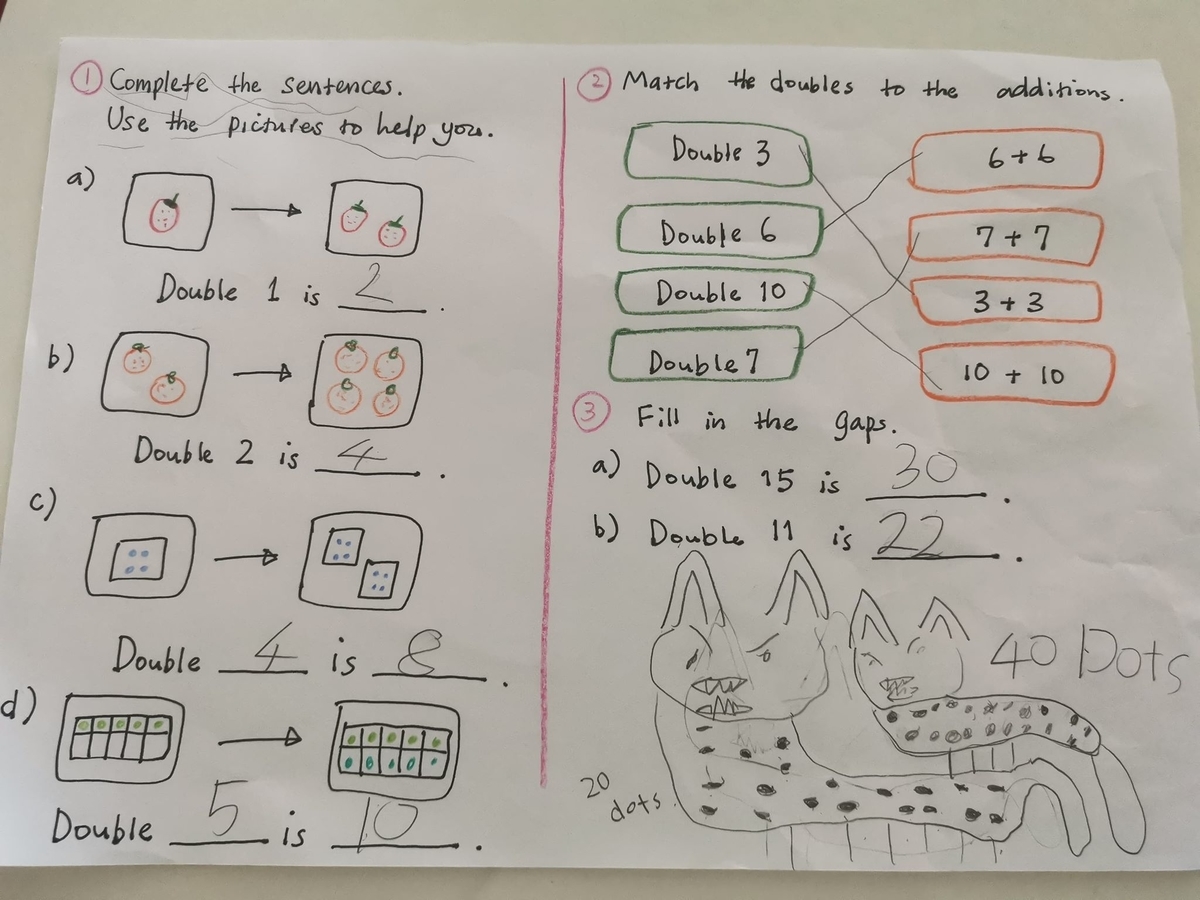 1 Complete the sentences.
Use the pictures to help you.
a)
Double 1 is 2.
b)
Double 2 is 4.
c)
Double 4 is 8.
d)
Double 5 is 10.
2 Match the doubles to the additions.
Double 3
6+6
Double 6
7+7
Double 10
3+3
Double 7
10 + 10
3 Fill in the gaps.
a) Double 15 is 30.
b) Double 11 is 22.
40 Dots
20
dots.